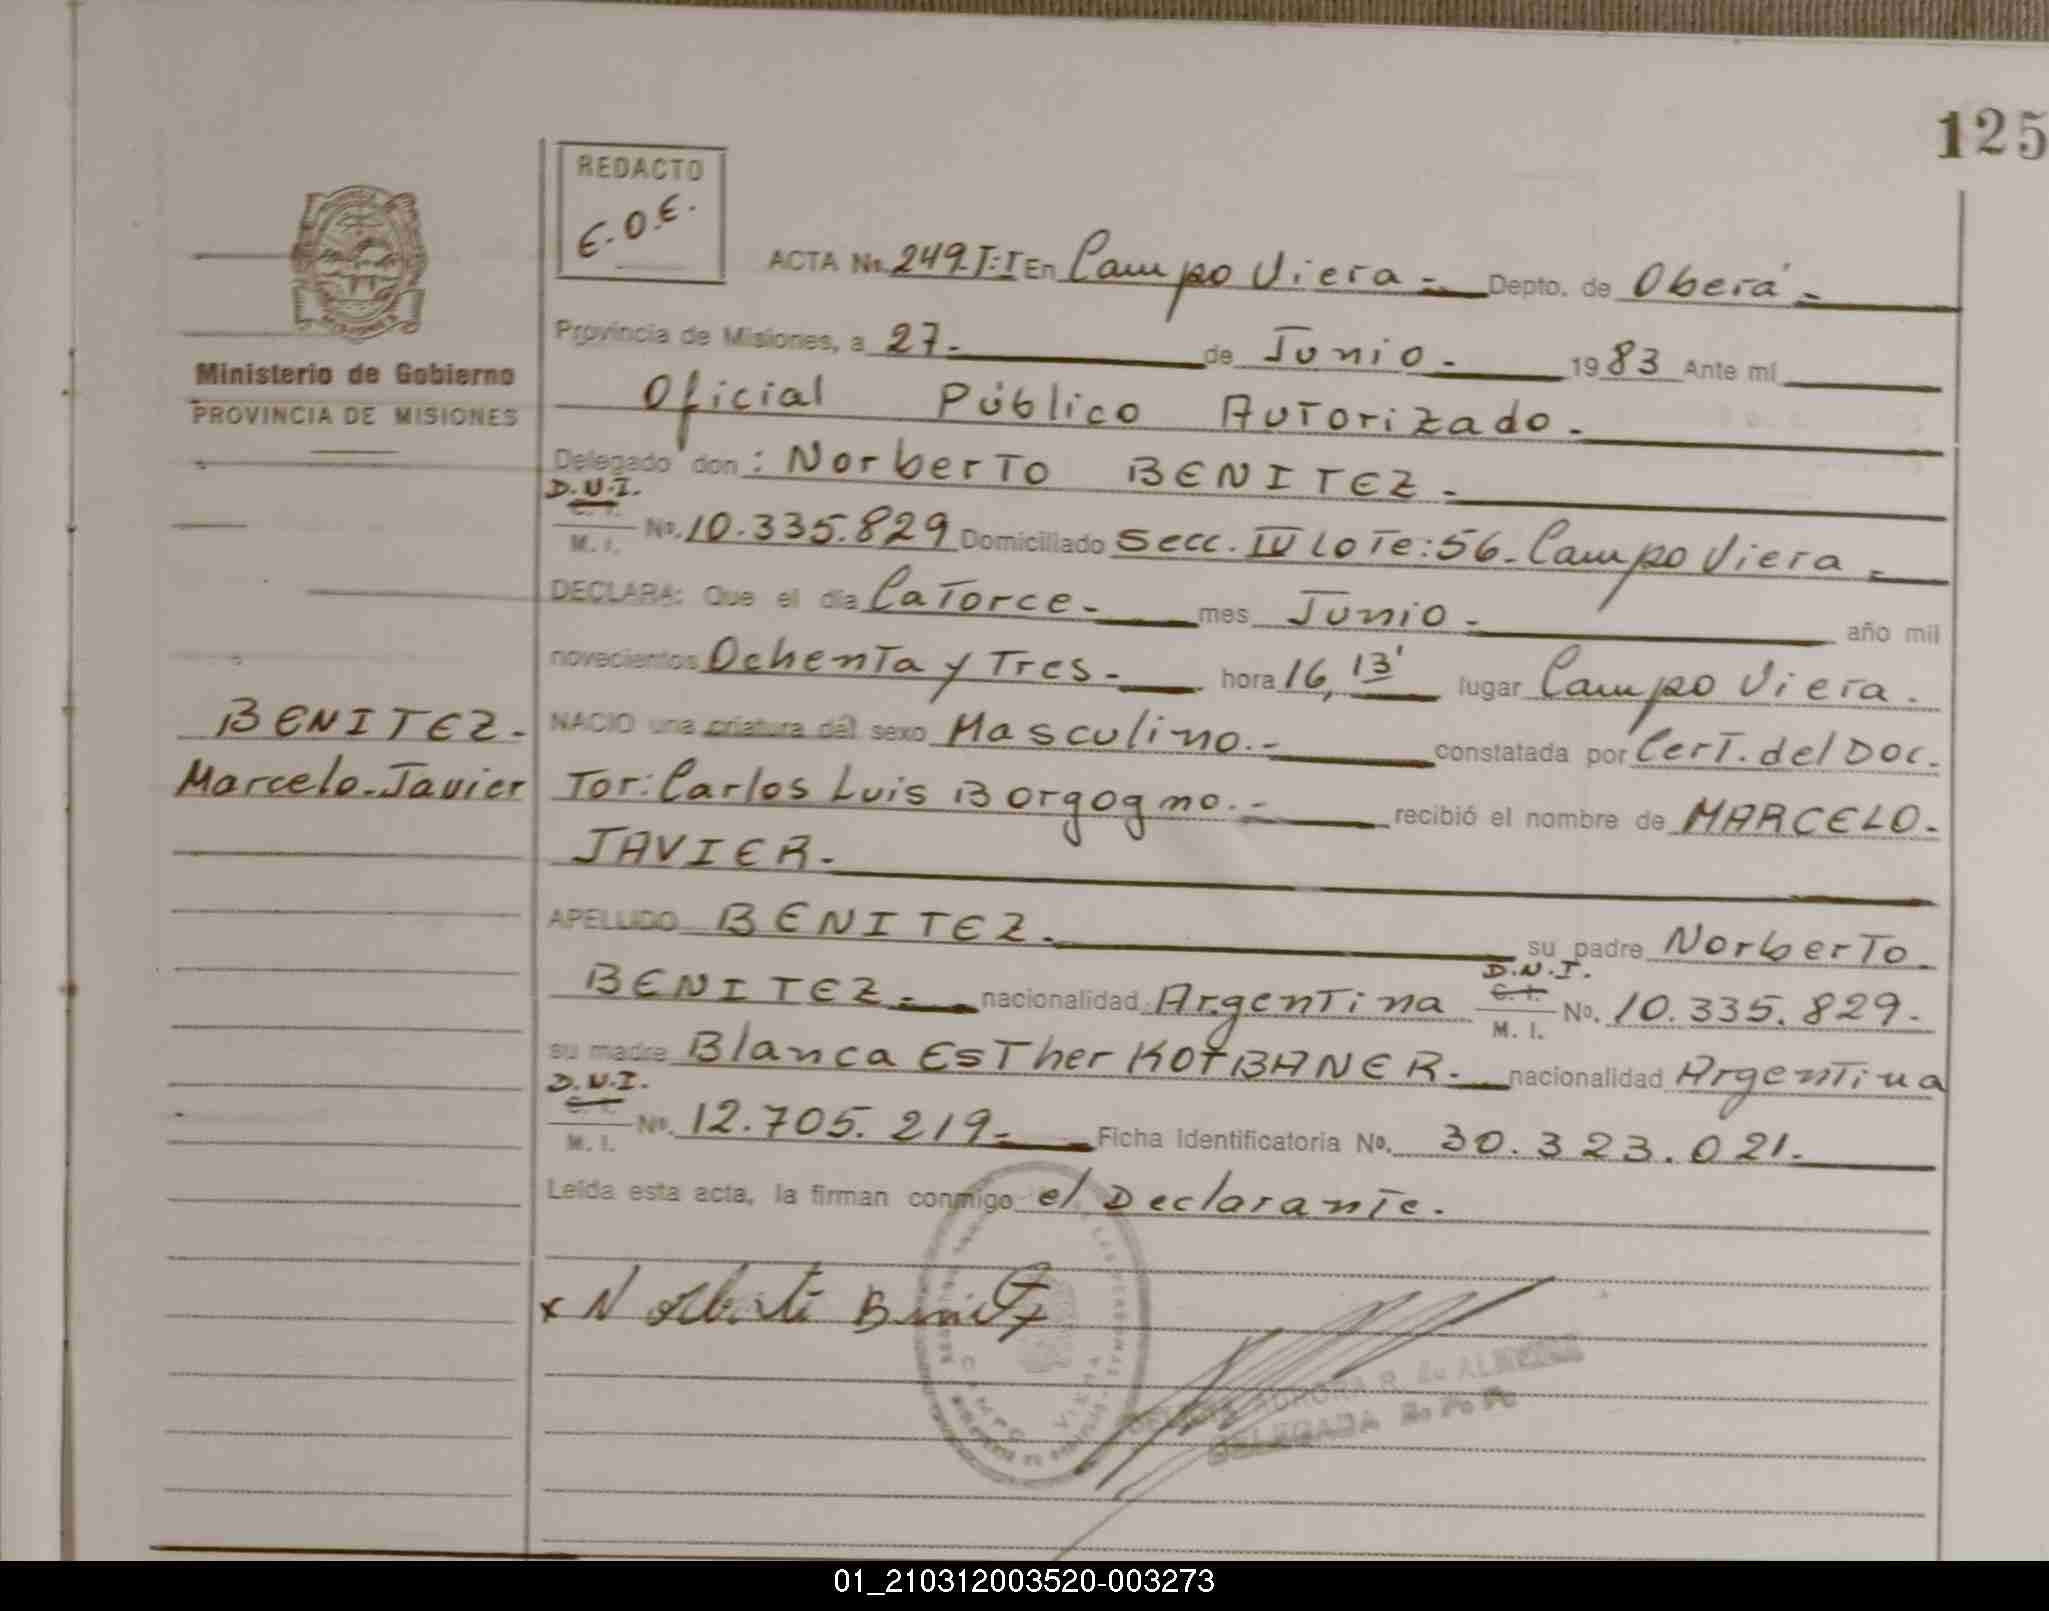 125
REDACTO
E.O.E.
ACTA No. 249.T:I En Campo Viera - Depto. de Oberá -
Provincia de Misiones, a 27- de Junio - 1983 Ante mí
Ministerio de Gobierno
PROVINCIA DE MISIONES
Oficial Público Autorizado -
Delegado don: Norberto BENITEZ -
D.N.I.
C. I.
M. I. No. 10.335.829 Domiciliado Secc. IV Lote: 56 - Campo Viera -
DECLARA: Que el día Catorce - mes Junio - año mil
novecientos Ochenta y Tres - hora 16,13' lugar Campo Viera.
BENITEZ -
Marcelo-Javier
NACIO una criatura del sexo Masculino.- constatada por Cert. del Doc-
tor: Carlos Luis Borgogno.- recibió el nombre de MARCELO-
JAVIER-
APELLIDO BENITEZ - su padre Norberto
BENITEZ - nacionalidad Argentina D.N.I. C. I. M. I. No. 10.335.829-
su madre Blanca Esther KOTBANER - nacionalidad Argentina
D.N.I.
C. I.
M. I. No. 12.705.219- Ficha Identificatoria No. 30.323.021-
Leída esta acta, la firman conmigo el Declarante.
x Norberto Benitez
CAMPO VIERA
AURORA R. de ALMEIDA
DELEGADA R. P. P.
01_210312003520-003273